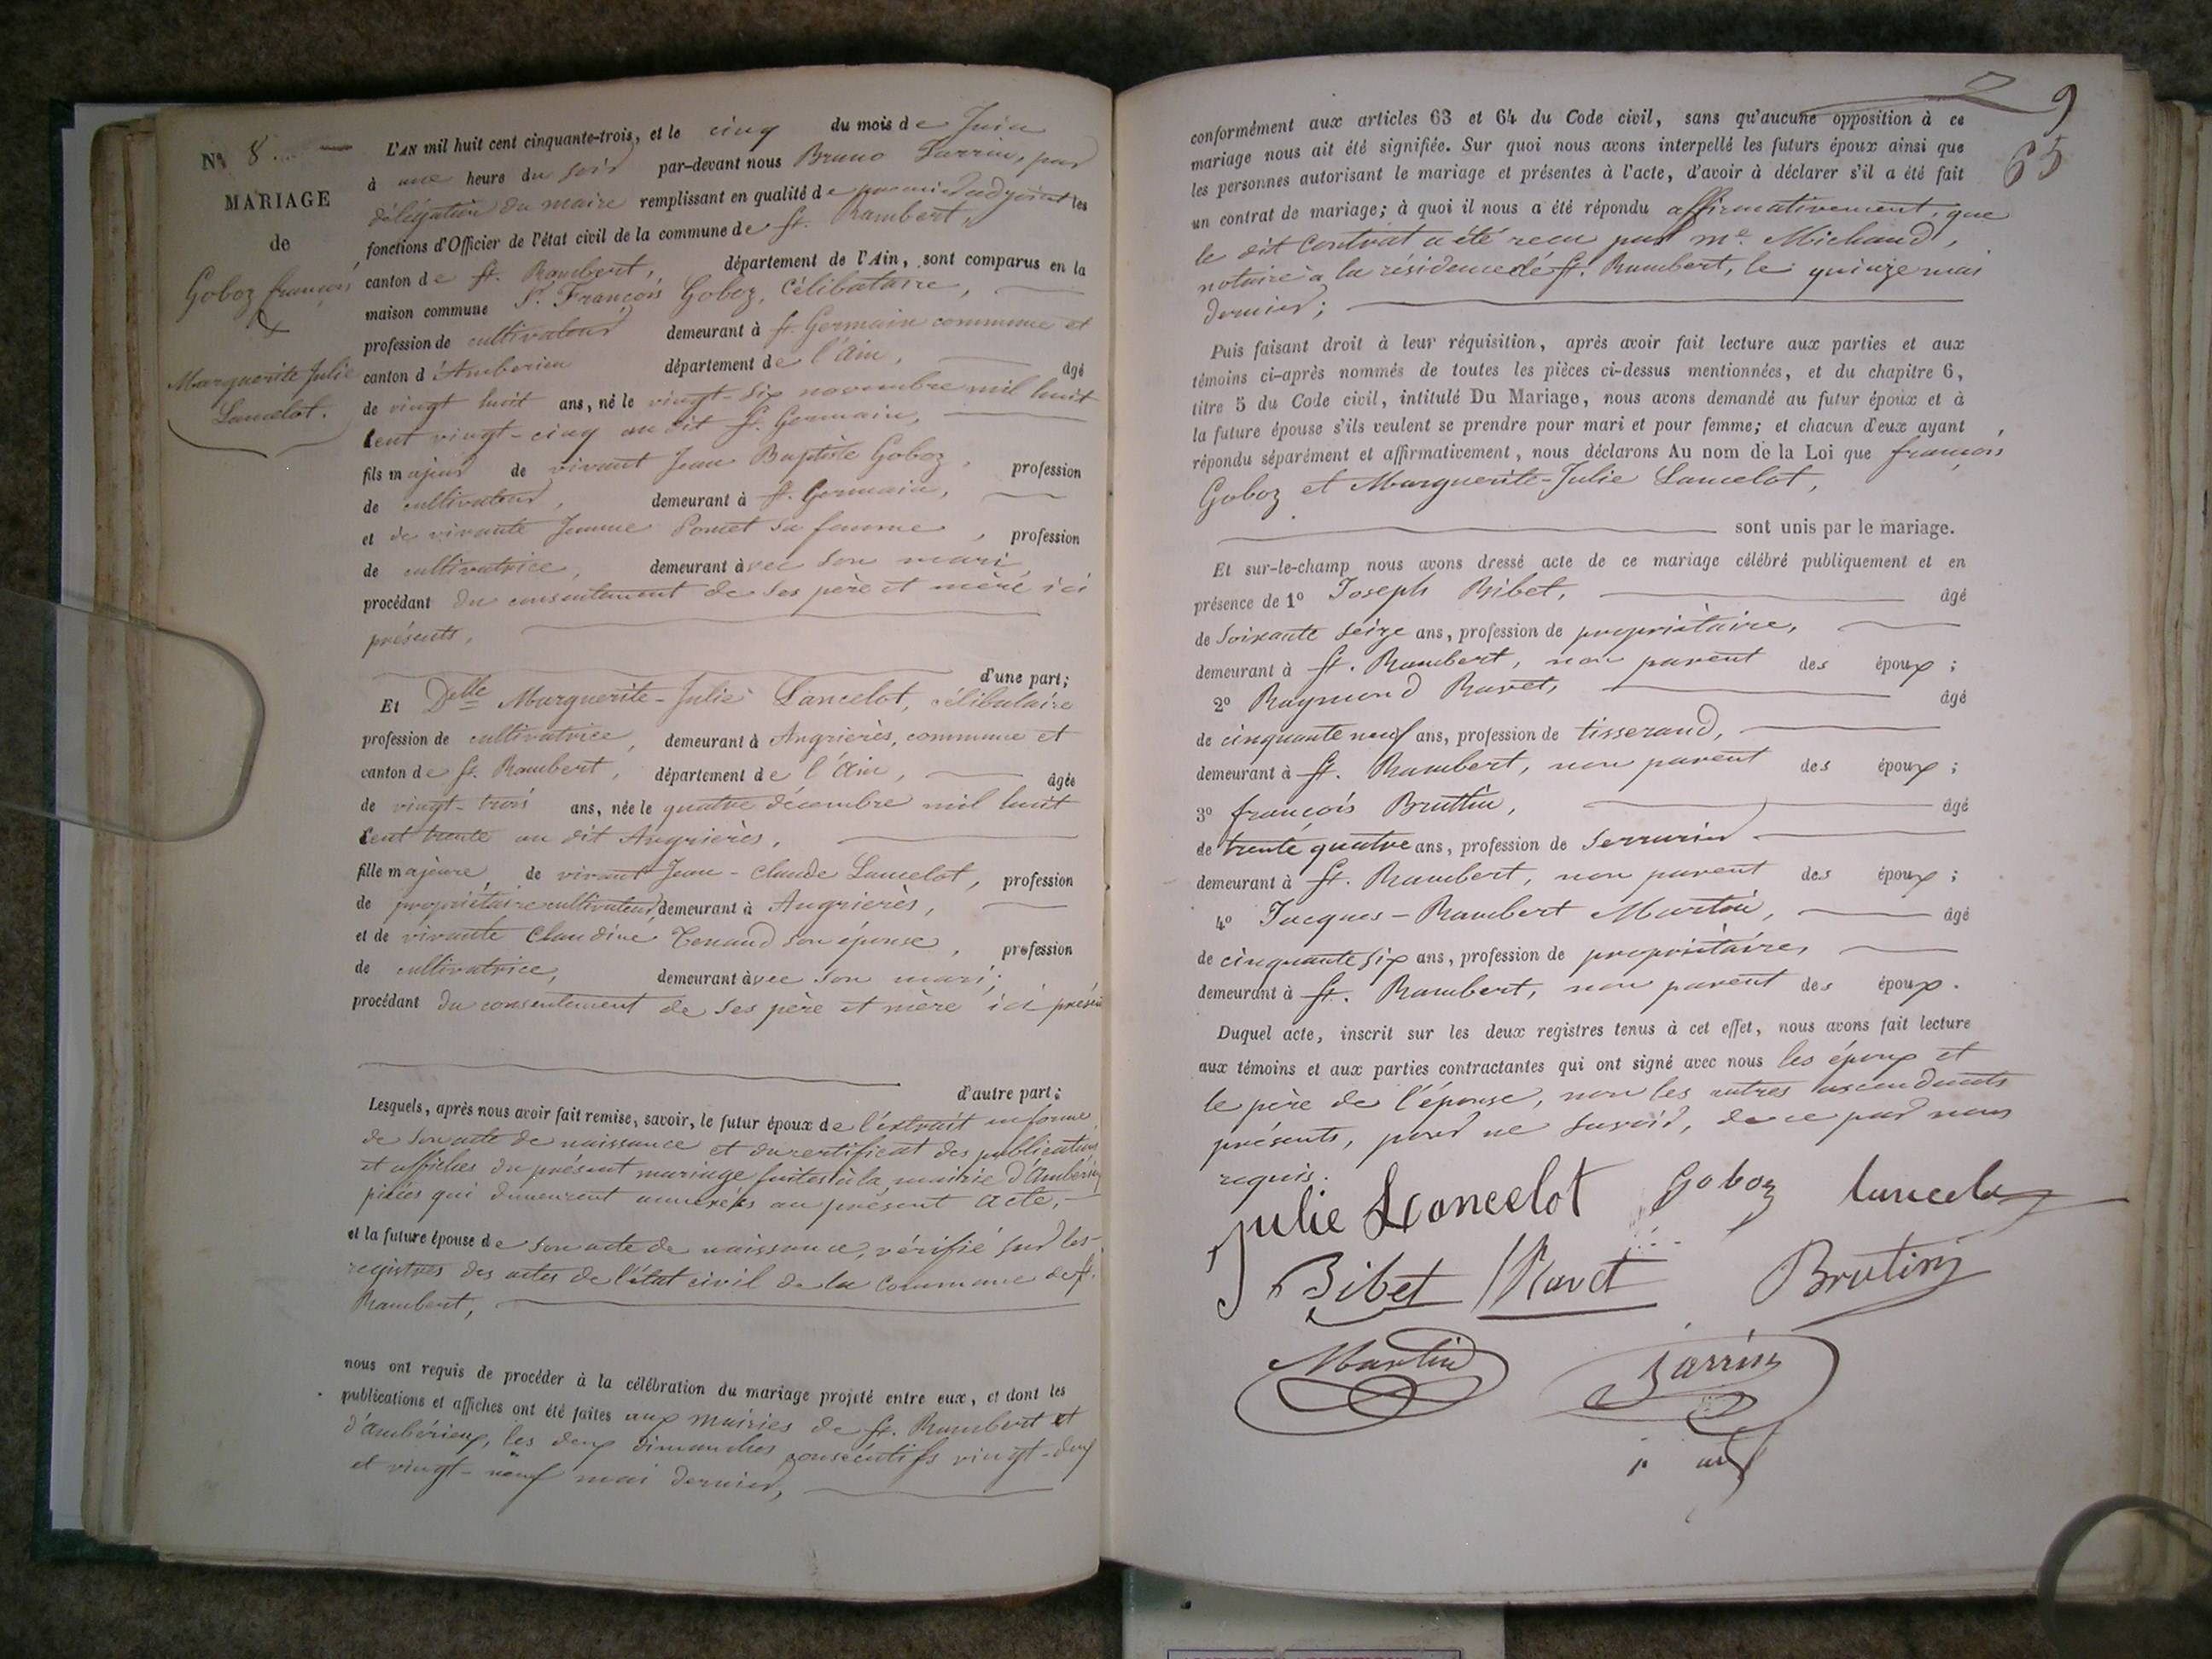 N° 8.
MARIAGE
de
Goboz françois
&
Marguerite Julie
Lancelot.
L'AN mil huit cent cinquante-trois, et le cinq du mois de Juin
à une heure du soir par-devant nous Bruno Sarrin, par
délégation du maire remplissant en qualité de premier adjoint les
fonctions d'Officier de l'état civil de la commune de St. Rambert,
canton de St. Rambert, département de l'Ain, sont comparus en la
maison commune Sr. François Goboz, célibataire,
profession de cultivateur demeurant à St. Germain commune et
canton d'Ambérieu département de l'Ain, âgé
de vingt huit ans, né le vingt-six novembre mil huit
cent vingt-cinq au dit St. Germain,
fils majeur de vivant Jean Baptiste Goboz, profession
de cultivateur, demeurant à St. Germain,
et de vivante Jeanne Pomet sa femme, profession
de cultivatrice, demeurant avec son mari,
procédant du consentement de ses père et mère ici
présents,
d'une part;
Et Delle Marguerite-Julie Lancelot, célibataire
profession de cultivatrice, demeurant à Angrières, commune et
canton de St. Rambert, département de l'Ain, âgée
de vingt-trois ans, née le quatre décembre mil huit
cent trente au dit Angrières,
fille majeure de vivant Jean-Claude Lancelot, profession
de propriétaire cultivateur, demeurant à Angrières,
et de vivante Claudine Tenand son épouse, profession
de cultivatrice, demeurant avec son mari;
procédant du consentement de ses père et mère ici
d'autre part;
Lesquels, après nous avoir fait remise, savoir, le futur époux de l'extrait en forme
de son acte de naissance et du certificat des publications
et affiches du présent mariage faites à la mairie d'Ambérieu
pièces qui demeurent annexées au présent acte,
et la future épouse de son acte de naissance, vérifié sur les
registres des actes de l'état civil de la commune de St.
Rambert,
nous ont requis de procéder à la célébration du mariage projeté entre eux, et dont les
publications et affiches ont été faites aux mairies de St. Rambert et
d'Ambérieux, les deux dimanches consécutifs vingt-deux
et vingt-neuf mai dernier,
9
65
conformément aux articles 63 et 64 du Code civil, sans qu'aucune opposition à ce
mariage nous ait été signifiée. Sur quoi nous avons interpellé les futurs époux ainsi que
les personnes autorisant le mariage et présentes à l'acte, d'avoir à déclarer s'il a été fait
un contrat de mariage; à quoi il nous a été répondu affirmativement, que
le dit contrat a été reçu par me. Michaud,
notaire à la résidence de St. Rambert, le quinze mai
dernier;
Puis faisant droit à leur réquisition, après avoir fait lecture aux parties et aux
témoins ci-après nommés de toutes les pièces ci-dessus mentionnées, et du chapitre 6,
titre 5 du Code civil, intitulé Du Mariage, nous avons demandé au futur époux et à
la future épouse s'ils veulent se prendre pour mari et pour femme; et chacun d'eux ayant
répondu séparément et affirmativement, nous déclarons Au nom de la Loi que françois
Goboz et Marguerite-Julie Lancelot,
sont unis par le mariage.
Et sur-le-champ nous avons dressé acte de ce mariage célébré publiquement et en
présence de 1° Joseph Bibet, âgé
de soixante seize ans, profession de propriétaire,
demeurant à St. Rambert, non parent des époux;
2° Raymond Ravet, âgé
de cinquante neuf ans, profession de tisserand,
demeurant à St. Rambert, non parent des époux;
3° françois Bruttin, âgé
de trente quatre ans, profession de serrurier
demeurant à St. Rambert, non parent des époux;
4° Jacques-Rambert Martin, âgé
de cinquante six ans, profession de propriétaire,
demeurant à St. Rambert, non parent des époux.
Duquel acte, inscrit sur les deux registres tenus à cet effet, nous avons fait lecture
aux témoins et aux parties contractantes qui ont signé avec nous les époux et
le père de l'épouse, non les autres ascendants
présents, pour ne savoir, de ce par nous
requis.
Julie Lancelot Goboz Lancelo
Bibet Ravet Brutin
Martin Sarrin